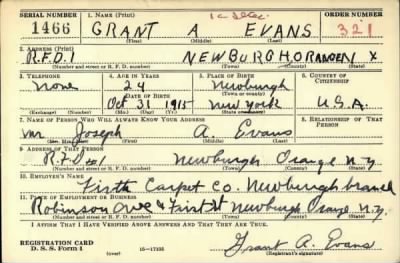 SERIAL NUMBER 1. NAME (Print) ORDER NUMBER
1466 GRANT A EVANS 321
(First) (Middle) (Last)
2. ADDRESS (Print)
R.F.D.1 NEWBURGH ORANGE N Y
(Number and street or R. F. D. number) (Town) (County) (State)
3. TELEPHONE 4. AGE IN YEARS 5. PLACE OF BIRTH 6. COUNTRY OF CITIZENSHIP
none 24 Newburgh
DATE OF BIRTH (Town or county)
Oct 31 1915 New York U.S.A.
(Exchange) (Number) (Mo.) (Day) (Yr.) (State or country)
7. NAME OF PERSON WHO WILL ALWAYS KNOW YOUR ADDRESS 8. RELATIONSHIP OF THAT PERSON
Mr. Joseph A. Evans
(Mr., Mrs., Miss) (First) (Middle) (Last)
9. ADDRESS OF THAT PERSON
R.F.D#1 Newburgh Orange N.Y.
(Number and street or R. F. D. number) (Town) (County) (State)
10. EMPLOYER'S NAME
Firth Carpet Co. Newburgh branch
11. PLACE OF EMPLOYMENT OR BUSINESS
Robinson Ave & First St Newburgh Orange N.Y.
(Number and street or R. F. D. number) (Town) (County) (State)
I AFFIRM THAT I HAVE VERIFIED ABOVE ANSWERS AND THAT THEY ARE TRUE.
REGISTRATION CARD
D. S. S. Form 1 (over) 16—17105 Grant A. Evans
(Registrant's signature)